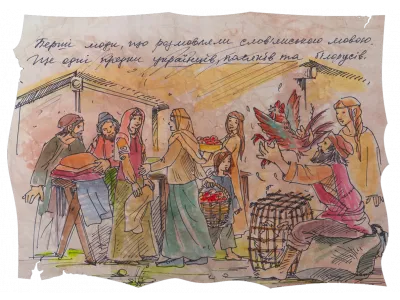 Перші люди, що розмовляли слов'янською мовою.
Це одні предки українців, поляків та білорусів.